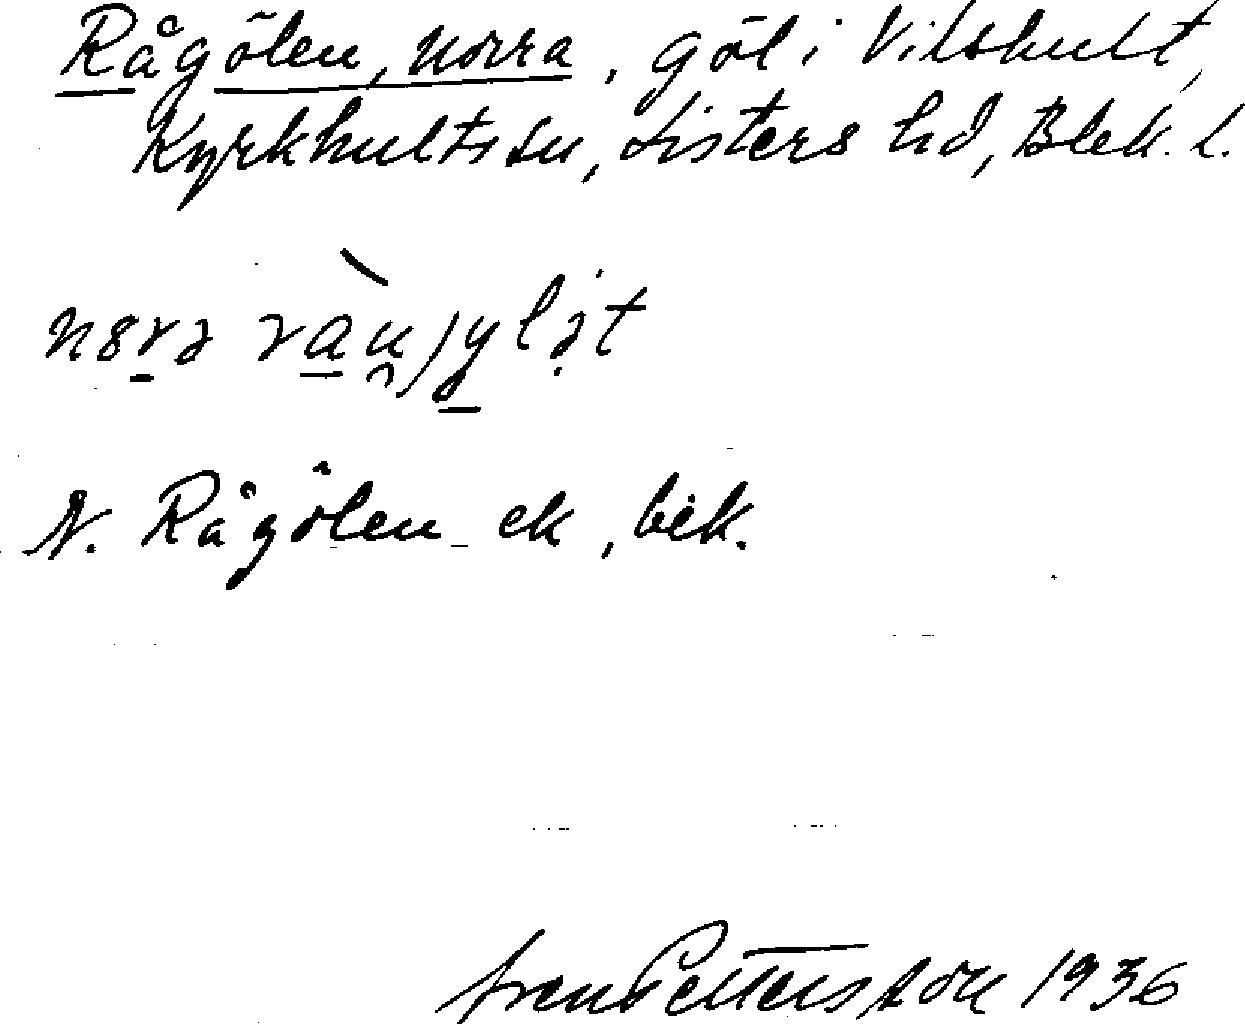 Rågölen, Norra, göl i Vilshult,
Kyrkhults sn, Listers hd, Blek. l.
N. Rågölen ek, bek.
Pettersson 1936